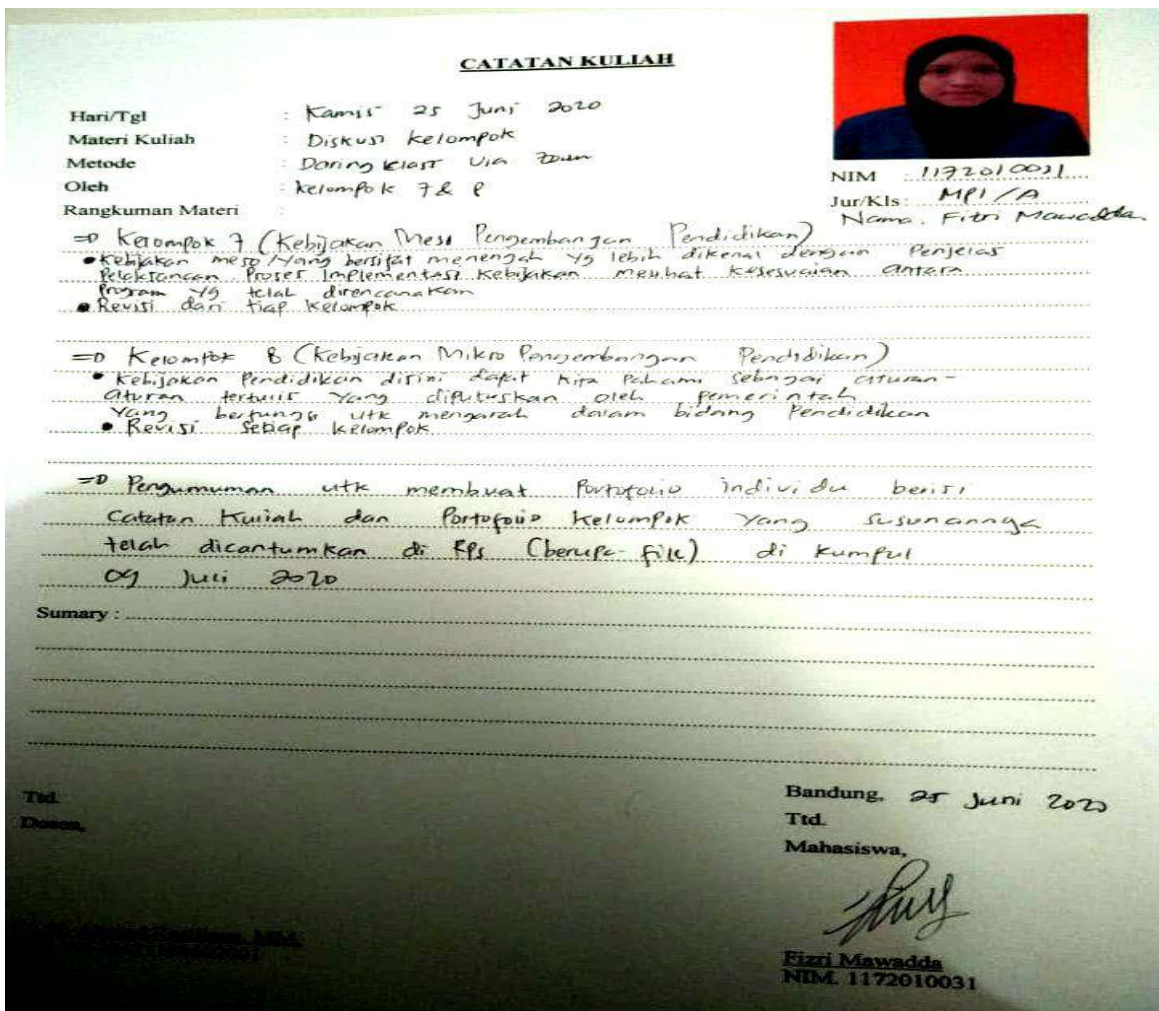 CATATAN KULIAH
Hari/Tgl : Kamis 25 Juni 2020
Materi Kuliah : Diskusi Kelompok
Metode : Daring kelast Via Zoom
Oleh : Kelompok 7 & 8
Rangkuman Materi :
NIM : 1172010031
Jur/Kls : MPI/A
Nama. Fitri Mawadda
=> Kelompok 7 (Kebijakan Meso Pengembangan Pendidikan)
• Kebijakan meso/yang bersifat menengah yg lebih dikenal dengan Penjelas
Pelaksanaan Proses Implementasi Kebijakan melihat kesesuaian antara
Program yg telah direncanakan
• Revisi dari tiap kelompok
=> Kelompok 8 (Kebijakan Mikro Pengembangan Pendidikan)
• Kebijakan Pendidikan disini dapat kita Pahami sebagai aturan-
aturan tertulis yang diputuskan oleh pemerintah
yang berfungsi utk mengarah dalam bidang Pendidikan
• Revisi setiap kelompok
=> Pengumuman utk membuat Portofolio individu berisi
Catatan Kuliah dan Portofolio Kelompok yang susunannya
telah dicantumkan di RPS (berupa file) di kumpul
09 Juli 2020
Sumary :
Bandung, 25 Juni 2020
Ttd.
Dosen,
Ttd.
Mahasiswa,
Fizri Mawadda
NIM. 1172010031